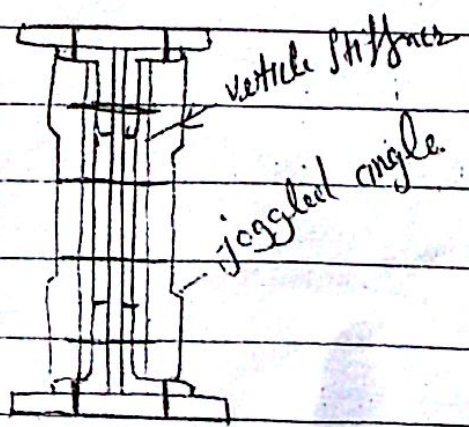 verticle stiffner
joggled angle.